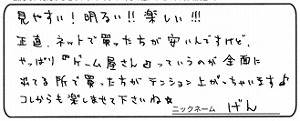 見やすい！明るい!!楽しい!!!
正直、ネットで買った方が安いんですけど、
やっぱり『ゲーム屋さん』っていうのが全面に
出てる所で買った方がテンション上がっちゃいます♪
コレからも楽しませて下さいね☆
ニックネーム げん